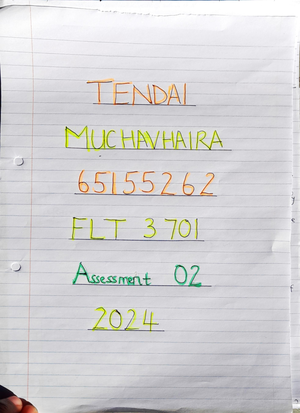 TENDAI
MUCHAVHAIRA
65155262
FLT 3701
Assessment 02
2024